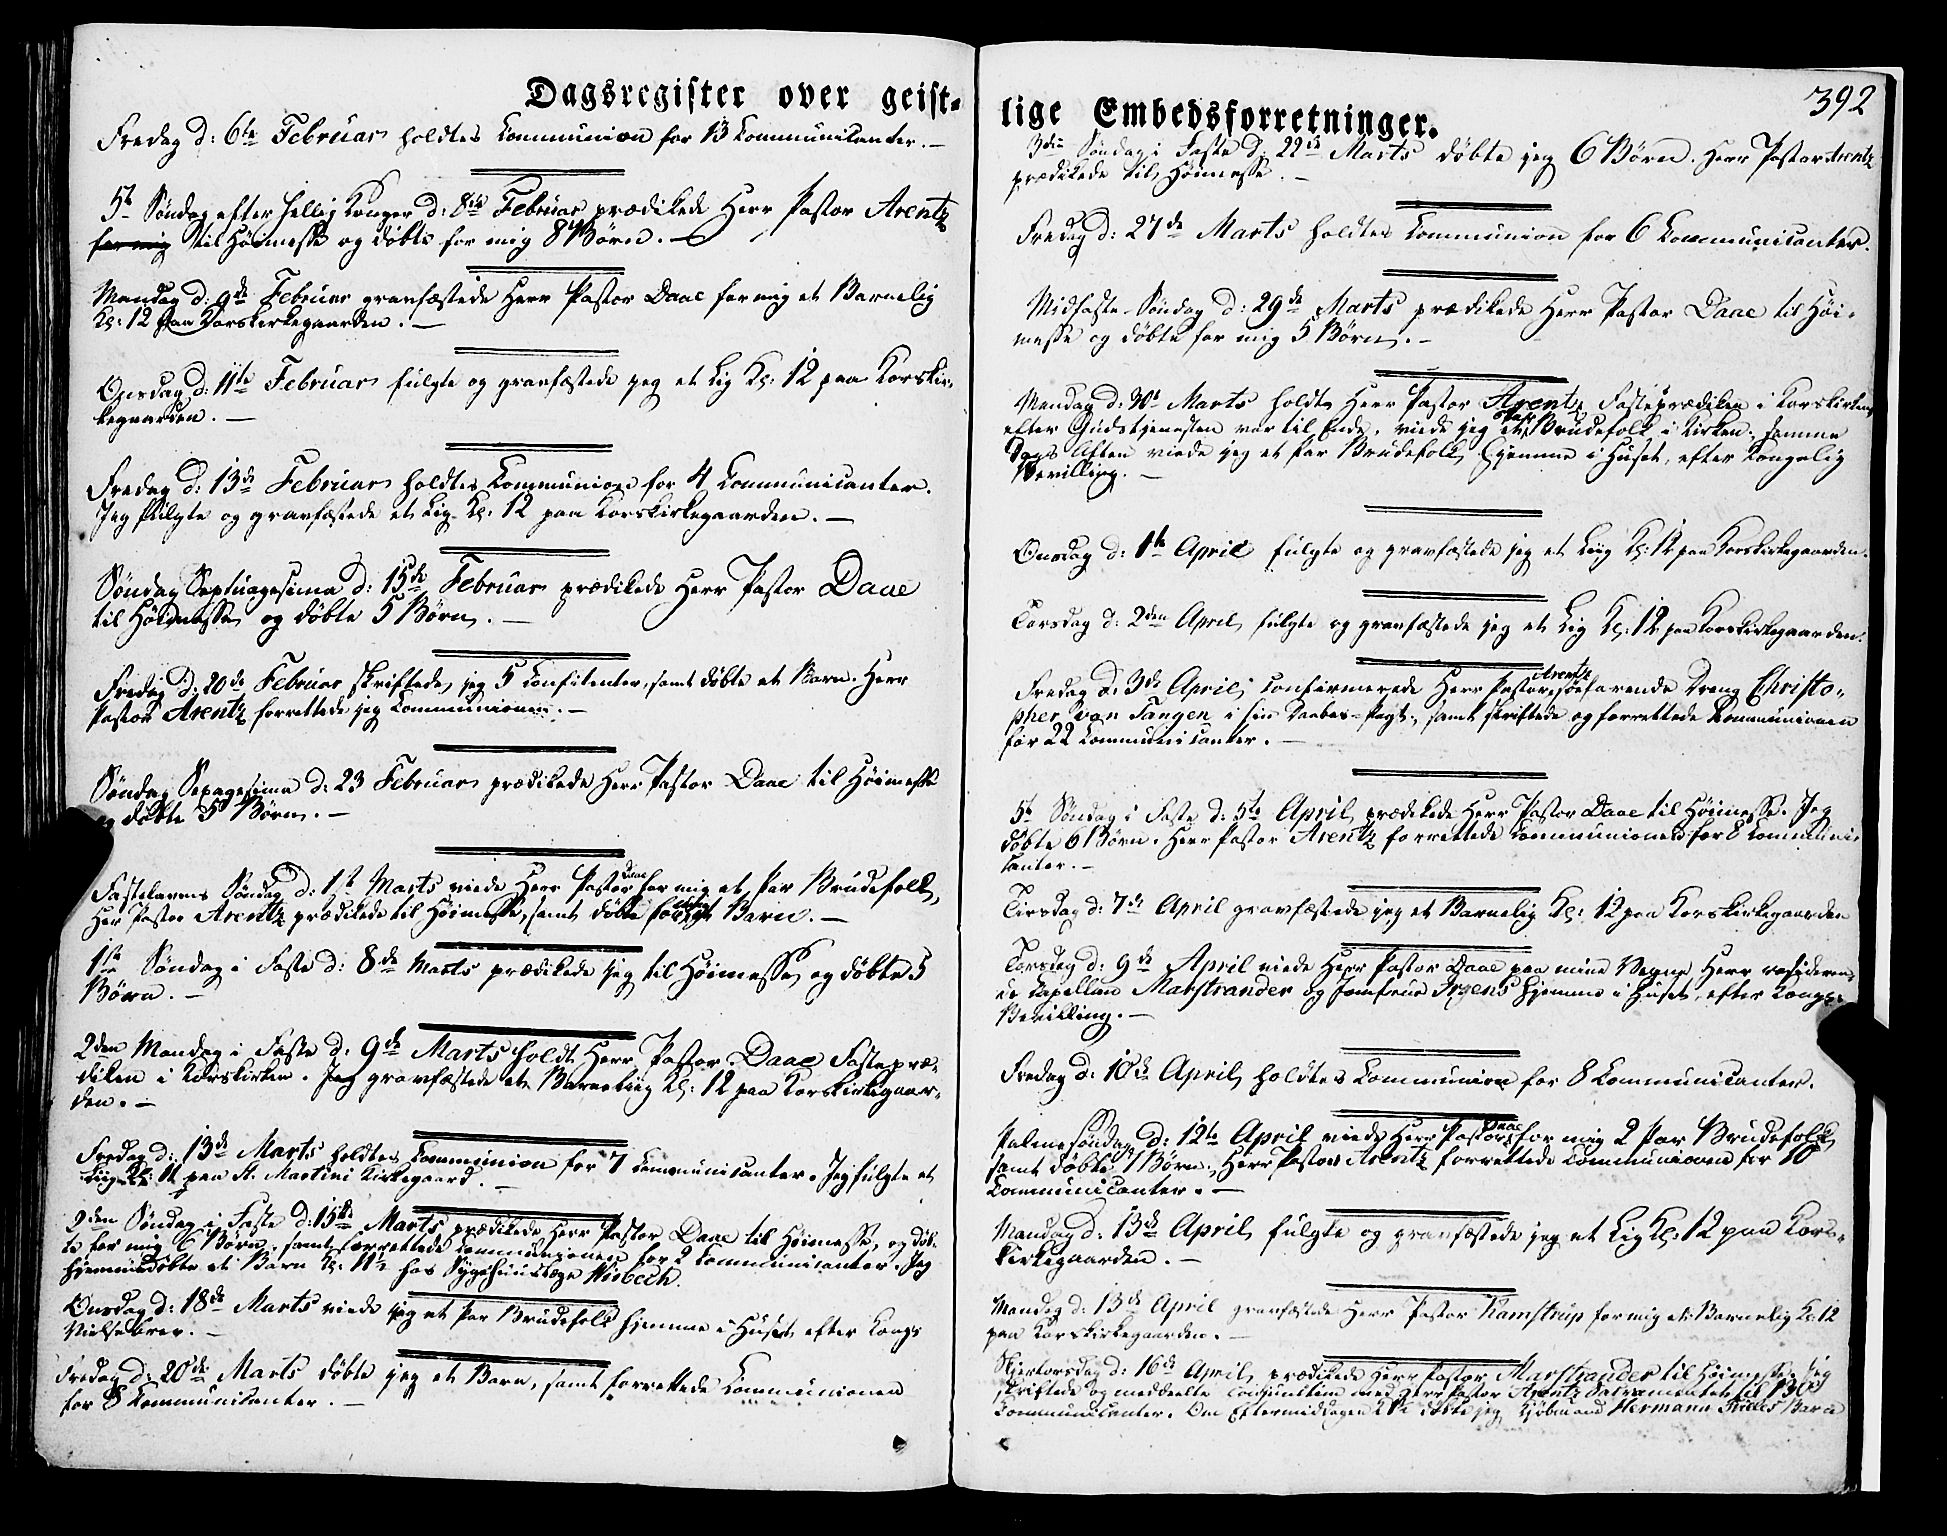 Dagsregister over geist-
Fredag d: 6te Februar holdtes Communion for 13 Communicanter. —
5te Søndag efter hellig Konger d: 8de Februar prædikede Herr Pastor Arentz
for mig til Høimesse og døbte for mig 8 Børn. —
Mandag d: 9de Februar gravfæstede Herr Pastor Daae for mig et Barnelig
Kl: 12 paa Korskirkegaarden. —
Onsdag d: 11te Februar fulgte og gravfæstede jeg et Lig Kl: 12 paa Korskir-
kegaarden. —
Fredag d: 13de Februar holdtes Communion for 4 Communicanter.
Jeg fulgte og gravfæstede et Lig Kl: 12 paa Korskirkegaarden. —
Søndag Septuagesima d: 15de Februar prædikede Herr Pastor Daae
til Høimesse og døbte 5 Børn. —
Fredag d: 20de Februar skriftede jeg 5 Confitenter, samt døbte et Barn. Herr
Pastor Arentz forrettede Communionen. —
Søndag Sexagesima d: 23 Februar prædikede Herr Pastor Daae til Høimesse
og døbte 5 Børn. —
Fastelavns Søndag d: 1ste Marts viede Herr Pastor Daae for mig et Par Brudefolk,
Her Pastor Arentz prædikede til Høimesse, samt døbte for mig et Barn. —
1ste Søndag i Faste d: 8de Marts prædikede jeg til Høimesse og døbte 5
Børn. —
2den Mandag i Faste d: 9de Marts holdt Herr Pastor Daae Fastepræ-
diken i Korskirken. Jeg gravfæstede et Barnelig Kl: 12 paa Korskirkegaar-
den. —
Fredag d: 13de Marts holdtes Communion for 7 Communicanter. Jeg fulgte et
Lig Kl: 12 paa St. Martini Kirkegaard. —
2den Søndag i Faste d: 15de Marts prædikede Herr Pastor Daae til Høimesse, og døb-
te for mig 6 Børn, samt forrettede Communionen for 2 Communicanter. Jeg
hjemmedøbte et Barn Kl: hos Wisbech.
Onsdag d: 18de Marts viede jeg et Par Brudefolk hjemme i Huset efter Kongs
Vielsebrev. —
Fredag d: 20de Marts døbte jeg et Barn, samt forrettede Communionen
for 8 Communicanter. —
392
lige Embedsforretninger.
3die Søndag i Faste d: 22de Marts døbte jeg 6 Børn. Herr Pastor Arentz
prædikede til Høimesse. —
Fredag d: 27de Marts holdtes Communion for 6 Communicanter.
Midfaste-Søndag d: 29de Marts prædikede Herr Pastor Daae til Høi-
messe og døbte for mig 5 Børn. —
Mandag d: 30te Marts holdt Herr Pastor Arentz Fasteprædiken i Korskirken,
efter Gudstjenesten var til Ende, viede jeg et Par Brudefolk i Kirken; samme
Dags Aften viede jeg et Par Brudefolk hjemme i Huset, efter Kongelig
Bevilling. —
Onsdag d: 1te April fulgte og gravfæstede jeg et Lig Kl: 12 paa Korskirkegaarden.
Torsdag d: 2den April fulgte og gravfæstede jeg et Lig Kl: 12 paa Korskirkegaarden.
Fredag d: 3de April confirmerede Herr Pastor Arentz søefarende Dreng Christo-
pher von Tangen i sin Daabes-Pagt, samt skriftede og forrettede Communionen
for 22 Communicanter. —
5te Søndag i Faste d: 5te April prædikede Herr Pastor Daae til Høimesse. Jeg
døbte 6 Børn. Herr Pastor Arentz forrettede Communionen for 8 Communi-
canter. —
Tirsdag d: 7de April gravfæstede jeg et Barnelig Kl: 12 paa Korskirkegaarden
Torsdag d: 9de April viede Herr Pastor Daae paa mine Vegne Herr resideren-
de Capellan Marstrander og Jomfrue Irgens hjemme i Huset, efter Kongs
Bevilling. —
Fredag d: 10de April holdtes Communion for 8 Communicanter.
Palmesøndag d: 12te April viede Herr Pastor Daae for mig 2 Par Brudefolk
samt døbte 7 Børn. Herr Pastor Arentz forrettede Communionen for 10
Communicanter. —
Mandag d: 13de April fulgte og gravfæstede jeg et Lig Kl: 12 paa Kors-
kirkegaarden. —
Mandag d: 13de April gravfæstede Herr Pastor Kamstrup for mig et Barnelig Kl: 12
paa Korskirkegaarden. —
Skjertorsdag d: 16de April prædikede Herr Pastor Marstrander til Høimesse. Jeg
skriftede og meddeelte med Herr Pastor Arentz Sacramentet til 130
Communicanter. Om Eftermiddagen døbte jeg Kjøbmand Hermann Barn